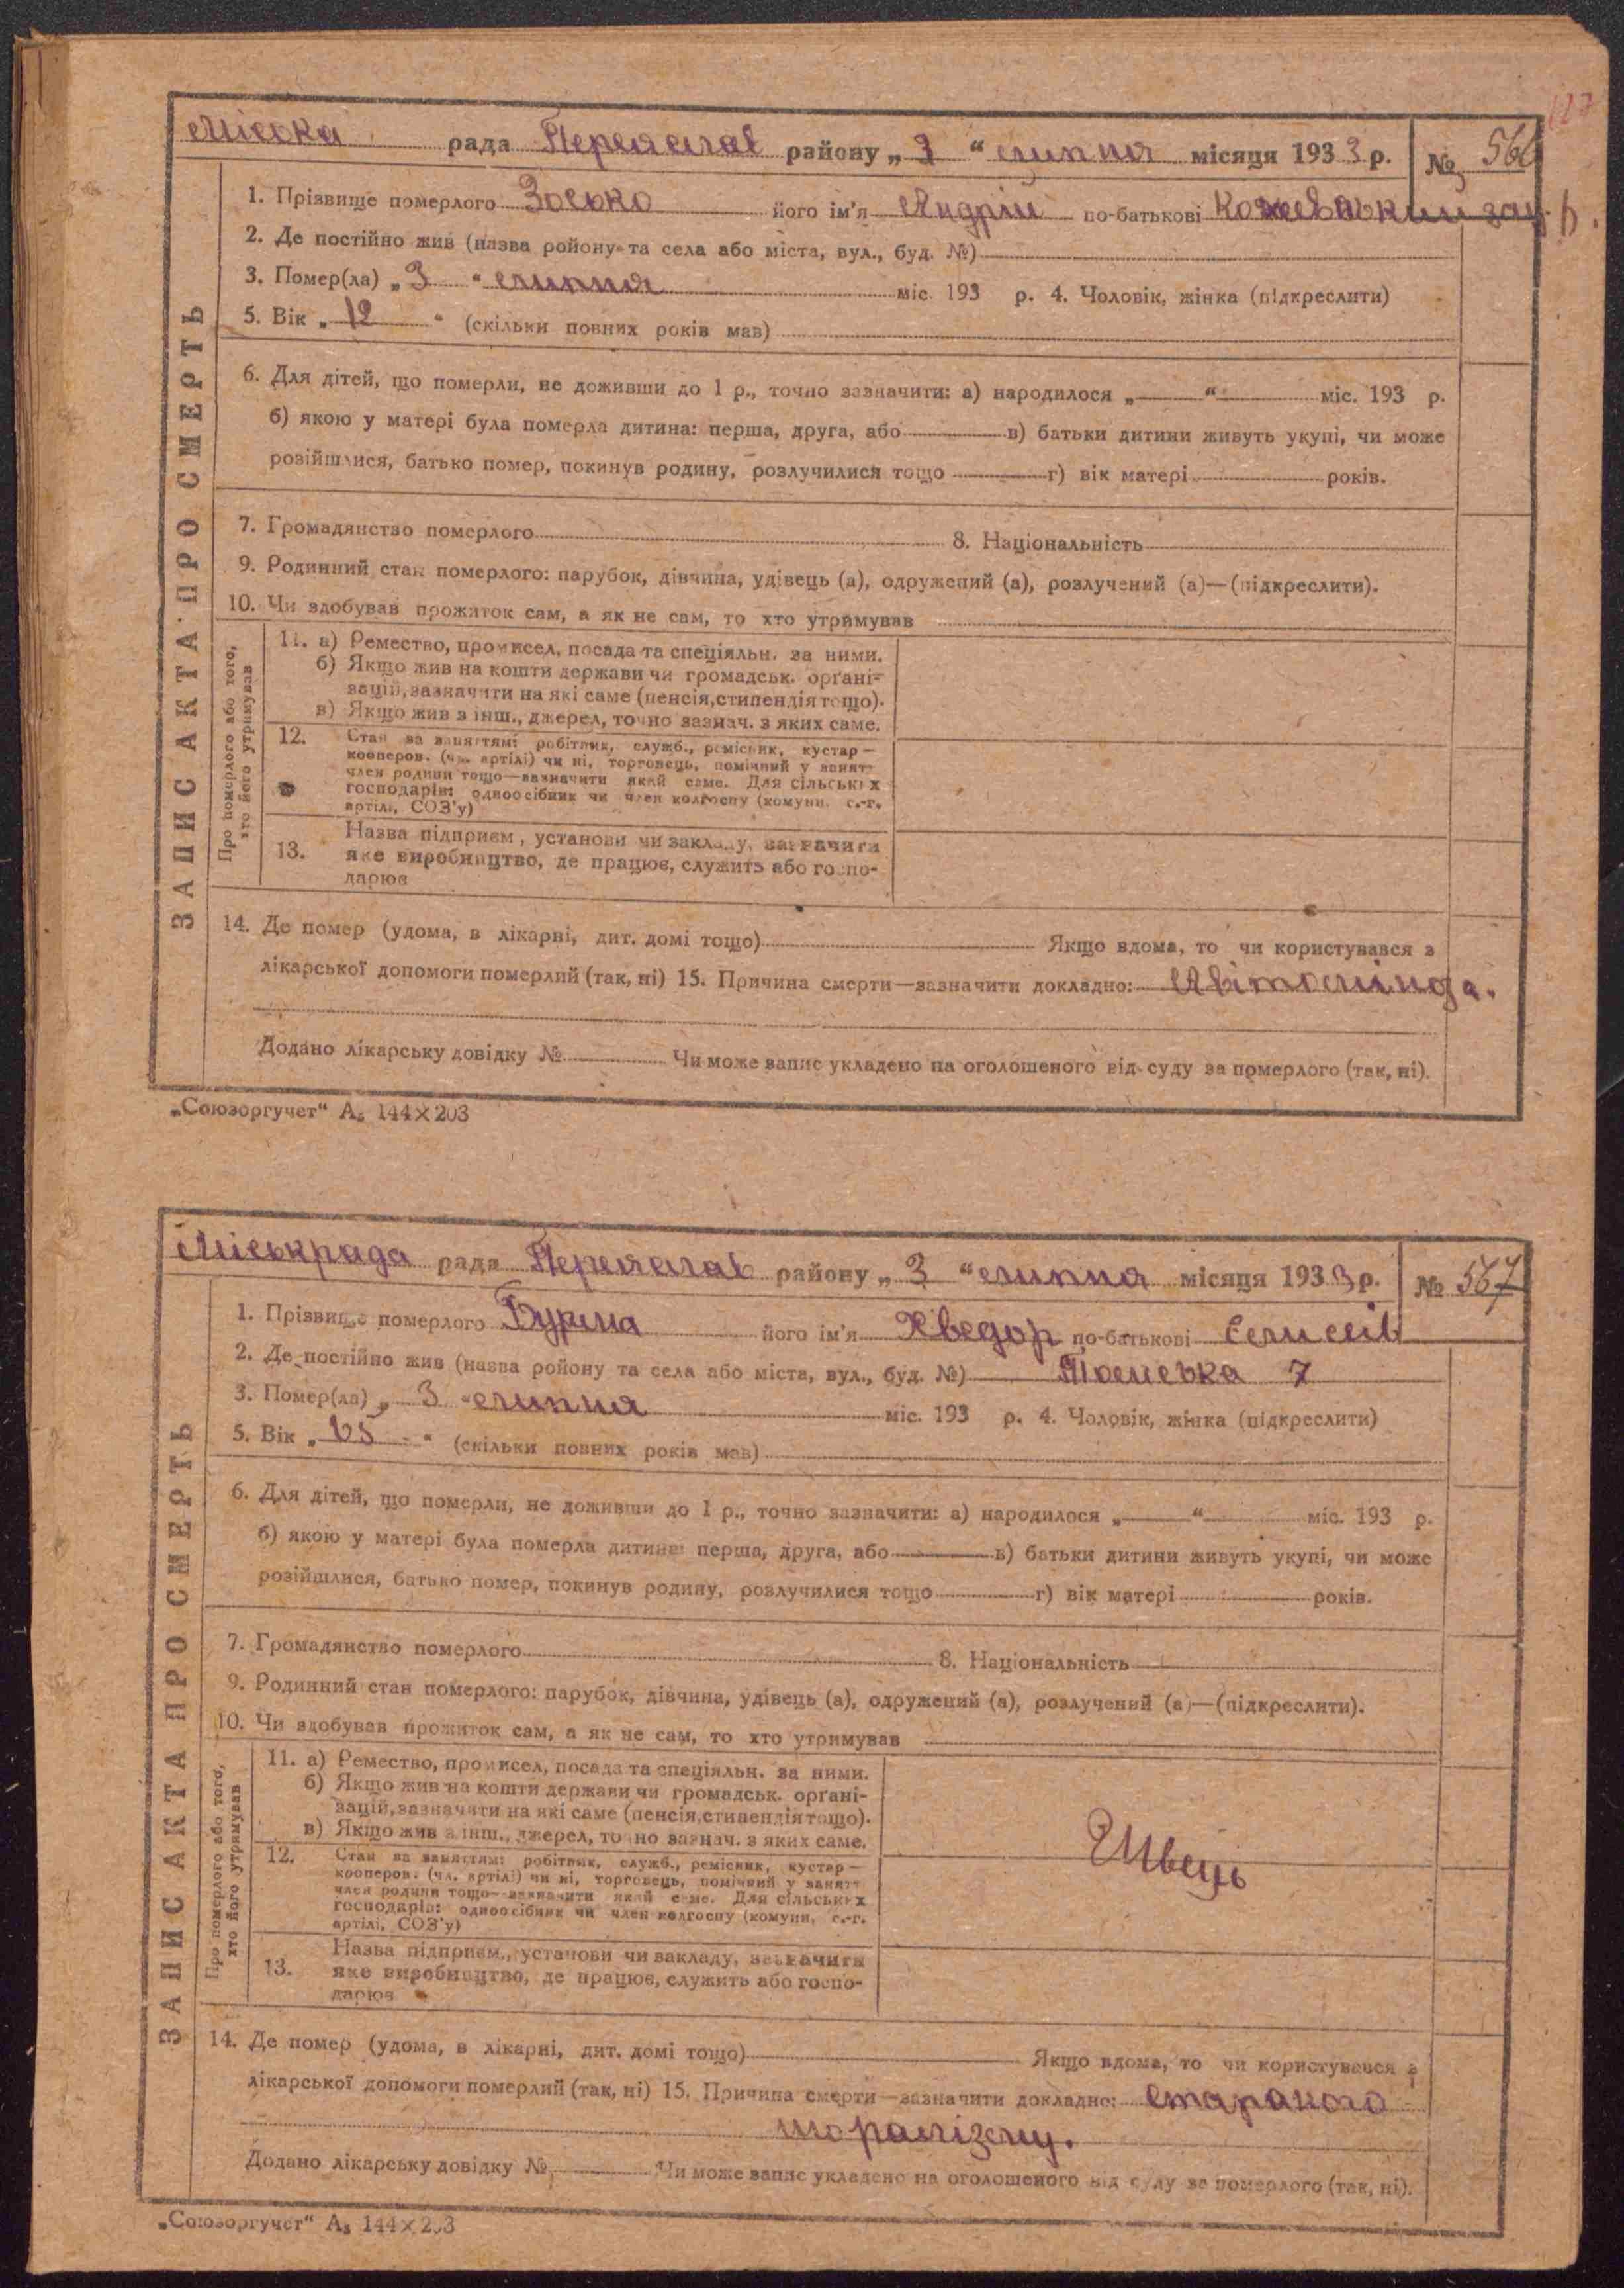 127
Міська рада Переяслав району „ 3 “ липня місяця 1933 р. № 566
1. Прізвище померлого Зосько його ім’я Андрій по-батькові
2. Де постійно жив (назва ройону та села або міста, вул., буд. №)
3. Помер(ла) „ 3 “ липня міс. 193 р. 4. Чоловік, жінка (підкреслити)
5. Вік „ 12 “ (скільки повних років мав)
6. Для дітей, що померли, не доживши до 1 р., точно зазначити: а) народилося „ “ міс. 193 р.
б) якою у матері була померла дитина: перша, друга, або в) батьки дитини живуть укупі, чи може
розійшлися, батько помер, покинув родину, розлучилися тощо г) вік матері років.
7. Громадянство померлого 8. Національність
9. Родинний стан померлого: парубок, дівчина, удівець (а), одружений (а), розлучений (а)—(підкреслити).
10. Чи здобував прожиток сам, а як не сам, то хто утримував
ЗАПИС АКТА ПРО СМЕРТЬ
Про померлого або того,
хто його утримував
11. а) Ремество, промисел, посада та спеціяльн. за ними.
б) Якщо жив на кошти держави чи громадськ. орґані-
зацій, зазначити на які саме (пенсія, стипендія тощо).
в) Якщо жив з інш., джерел, точно зазнач. з яких саме.
12. Стан за заняттям: робітник, служб., ремісник, кустар—
кооперов. (чл. артілі) чи ні, торговець, помічний у занят-
член родини тощо—зазначити який саме. Для сільських
господарів: одноосібник чи член колгоспу (комуни, с.-г.
артілі, СОЗ’у)
13. Назва підприєм., установи чи закладу, зазначити
яке виробництво, де працює, служить або госпо-
дарює
14. Де помер (удома, в лікарні, дит. домі тощо) Якщо вдома, то чи користувався з
лікарської допомоги померлий (так, ні) 15. Причина смерти—зазначити докладно:
Додано лікарську довідку № Чи може запис укладено на оголошеного від суду за померлого (так, ні).
„Союзоргучет“ А₅ 144×203
Міськрада рада Переяслав району „ 3 “ липня місяця 1933 р. № 567
1. Прізвище померлого Бурма його ім’я Хведор по-батькові
2. Де постійно жив (назва ройону та села або міста, вул., буд. №) 7
3. Помер(ла) „ 3 “ липня міс. 193 р. 4. Чоловік, жінка (підкреслити)
5. Вік „ 65 “ (скільки повних років мав)
6. Для дітей, що померли, не доживши до 1 р., точно зазначити: а) народилося „ “ міс. 193 р.
б) якою у матері була померла дитина: перша, друга, або в) батьки дитини живуть укупі, чи може
розійшлися, батько помер, покинув родину, розлучилися тощо г) вік матері років.
7. Громадянство померлого 8. Національність
9. Родинний стан померлого: парубок, дівчина, удівець (а), одружений (а), розлучений (а)—(підкреслити).
10. Чи здобував прожиток сам, а як не сам, то хто утримував
ЗАПИС АКТА ПРО СМЕРТЬ
Про померлого або того,
хто його утримував
11. а) Ремество, промисел, посада та спеціяльн. за ними.
б) Якщо жив на кошти держави чи громадськ. орґані-
зацій, зазначити на які саме (пенсія, стипендія тощо).
в) Якщо жив з інш., джерел, точно зазнач. з яких саме.
Швець
12. Стан за заняттям: робітник, служб., ремісник, кустар—
кооперов. (чл. артілі) чи ні, торговець, помічний у занят-
член родини тощо—зазначити який саме. Для сільських
господарів: одноосібник чи член колгоспу (комуни, с.-г.
артілі, СОЗ’у)
13. Назва підприєм., установи чи закладу, зазначити
яке виробництво, де працює, служить або госпо-
дарює
14. Де помер (удома, в лікарні, дит. домі тощо) Якщо вдома, то чи користувався з
лікарської допомоги померлий (так, ні) 15. Причина смерти—зазначити докладно: Старакого
моралізму.
Додано лікарську довідку № Чи може запис укладено на оголошеного від суду за померлого (так, ні).
„Союзоргучет“ А₅ 144×203